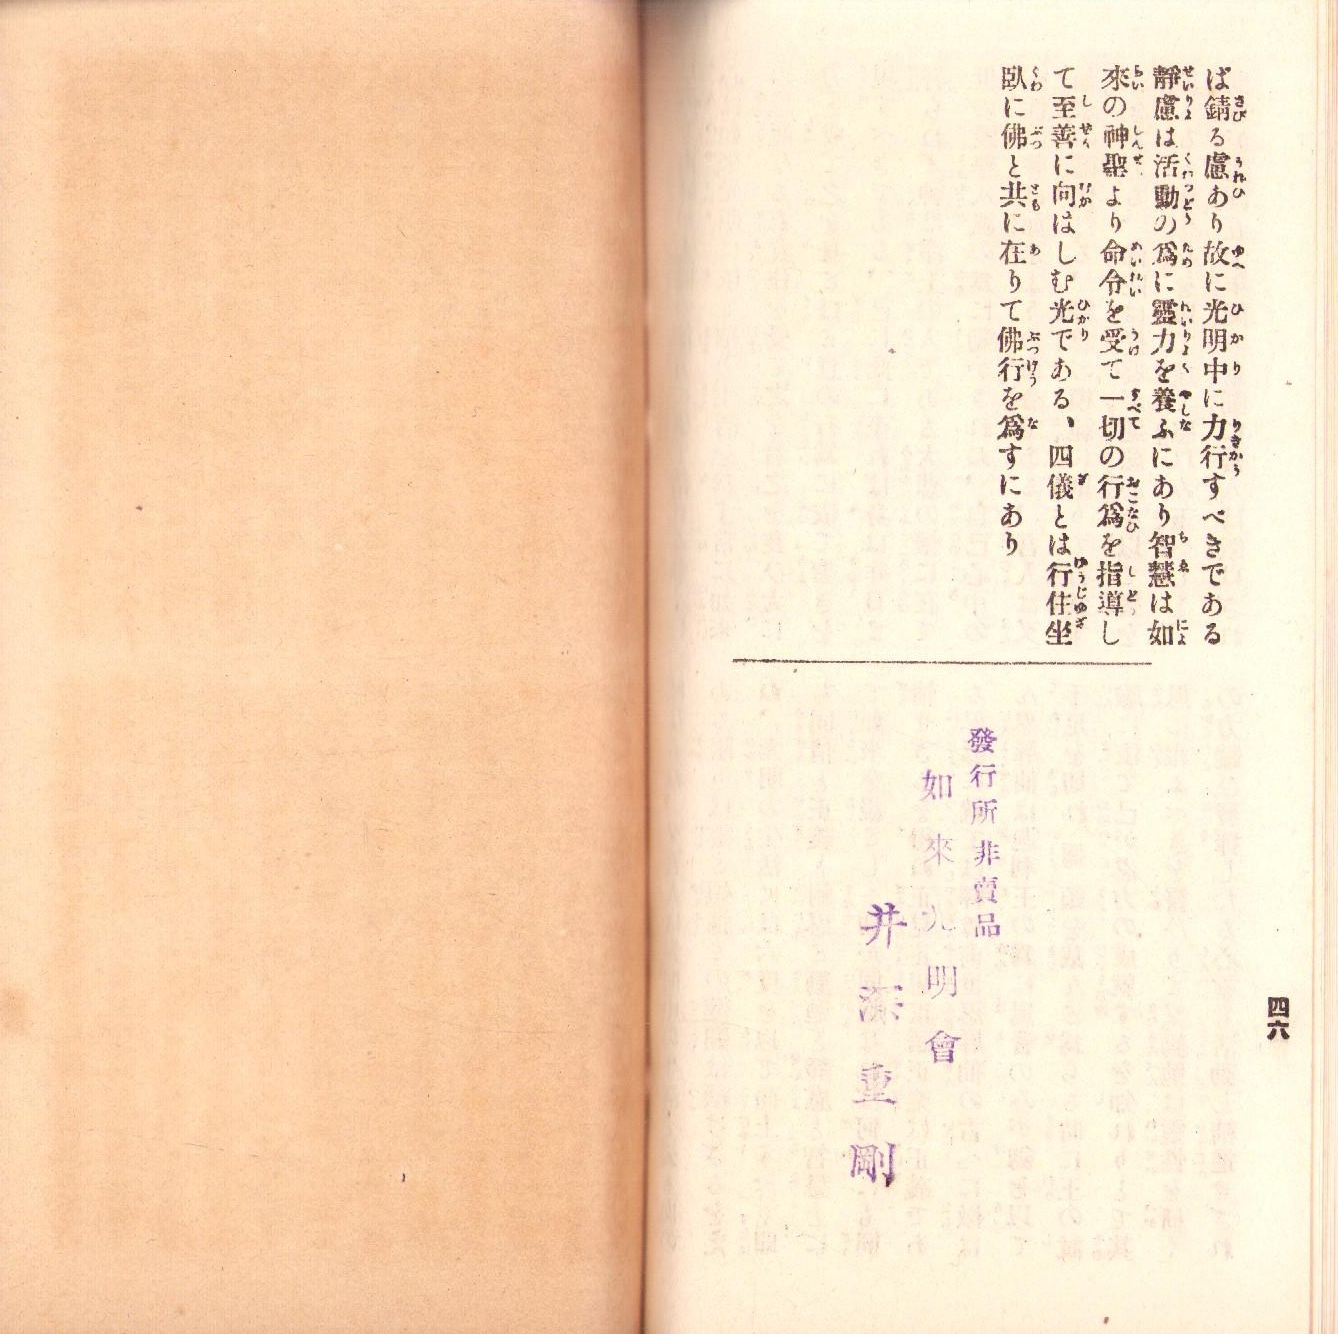 ば錆る慮あり故に光明中に力行すべきである
靜慮は活動の爲に靈力を養ふにあり智慧は如
來の神聖より命令を受て一切の行爲を指導し
て至善に向はしむ光である、四儀とは行住坐
臥に佛と共に在りて佛行を爲すにあり
發行所非賣品
如來光明會
井深重剛
四六